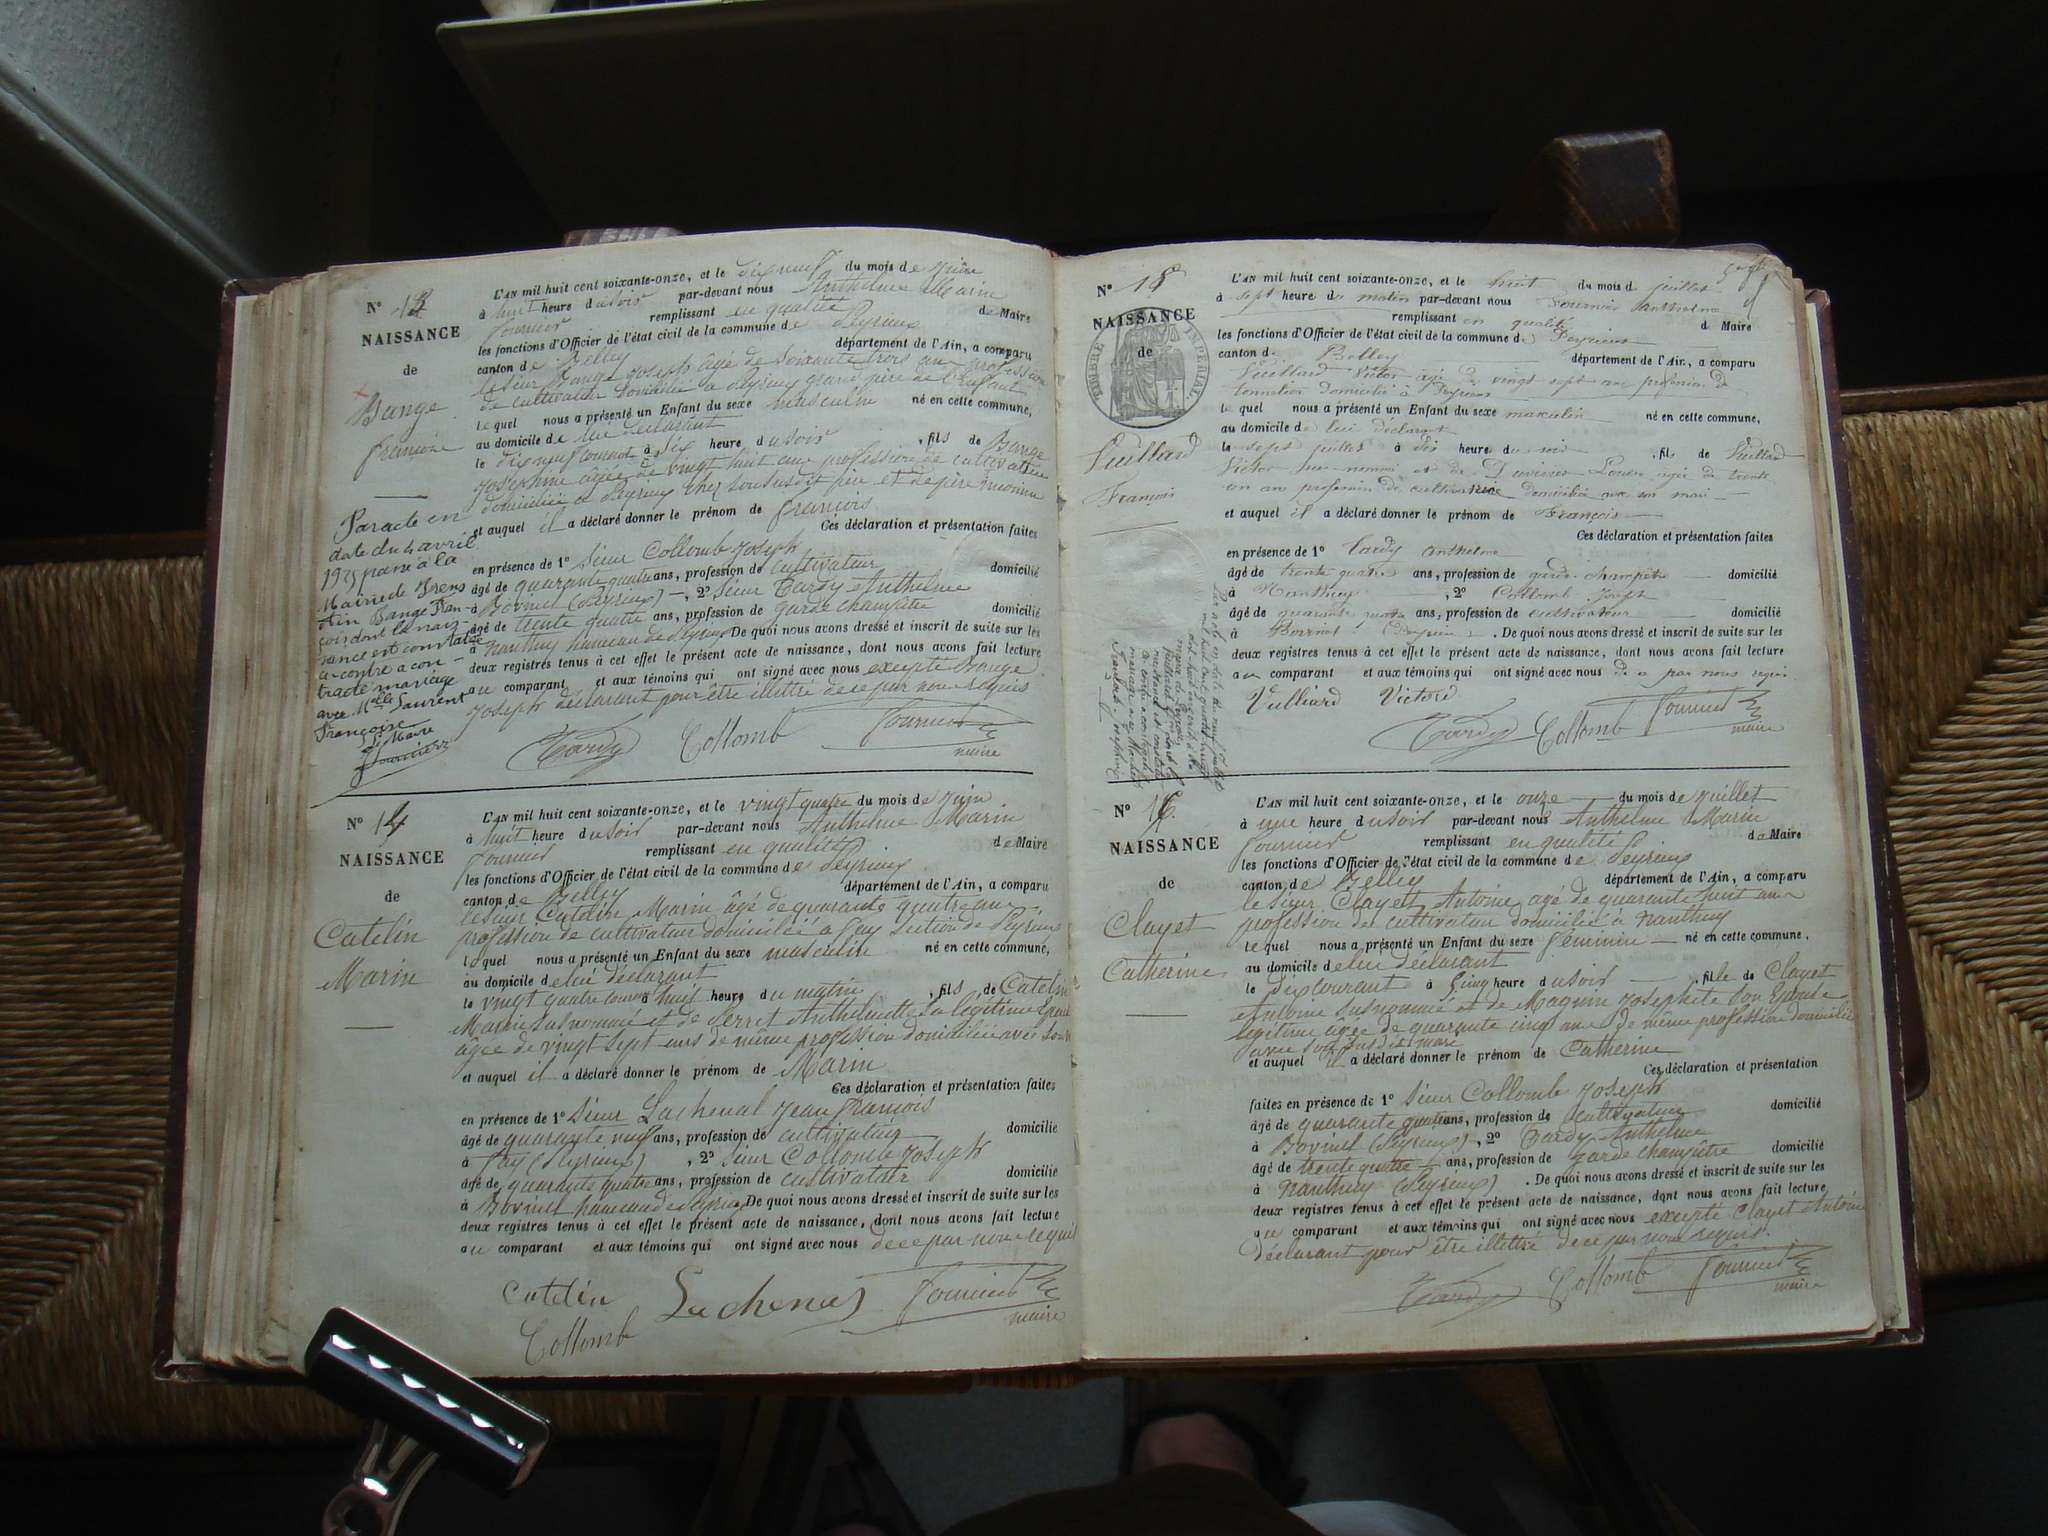 N° 13
NAISSANCE
de
Bange
François
Par acte en
date du 4 avril
1925 passé à la
Mairie de Brens
Ain Bange Fran-
çois dont la nais-
sance est constatée
ci-contre a con-
tracté mariage
avec Melle Laurent
Françoise
Le Maire
Fournier
L'AN mil huit cent soixante-onze, et le dix neuf du mois de Juin
à huit heure du soir par-devant nous Anthelme Marin
Fournier remplissant en qualité de Maire
les fonctions d'Officier de l'état civil de la commune de Peyrieux
canton de Belley département de l'Ain, a comparu
le sieur Bange Joseph agé de soixante trois ans profession
de cultivateur domicilié à Peyrieux grand père de l'Enfant
lequel nous a présenté un Enfant du sexe masculin né en cette commune,
au domicile de lui déclarant
le dix neuf courant à six heure du soir , fils de Bange
Josephine âgée de vingt huit ans profession de cultivatrice
domiciliée à Peyrieux chez son susdit père et de père inconnu
et auquel il a déclaré donner le prénom de François
Ces déclaration et présentation faites
en présence de 1° Sieur Collomb Joseph
âgé de quarante quatre ans, profession de cultivateur domicilié
à Bovinel (Peyrieux) , 2° Sieur Tardy Anthelme
âgé de trente quatre ans, profession de garde champêtre domicilié
à Nanthuy hameau de Peyrieux De quoi nous avons dressé et inscrit de suite sur les
deux registres tenus à cet effet le présent acte de naissance, dont nous avons fait lecture
au comparant et aux témoins qui ont signé avec nous excepté Bange
Joseph déclarant pour être illettré de ce par nous requis
Tardy Collomb Fournier
maire
N° 14
NAISSANCE
de
Catelin
Marin
L'AN mil huit cent soixante-onze, et le vingt quatre du mois de Juin
à huit heure du soir par-devant nous Anthelme Marin
Fournier remplissant en qualité de Maire
les fonctions d'Officier de l'état civil de la commune de Peyrieux
canton de Belley département de l'Ain, a comparu
le sieur Catelin Marin âgé de quarante quatre ans
profession de cultivateur domicilié à Fay section de Peyrieux
lequel nous a présenté un Enfant du sexe masculin né en cette commune,
au domicile de lui déclarant
le vingt quatre courant à huit heure du matin , fils de Catelin
Marin susnommé et de Perret Anthelmette sa légitime Epouse
âgée de vingt sept ans de même profession domiciliée avec
et auquel il a déclaré donner le prénom de Marin
Ces déclaration et présentation faites
en présence de 1° Sieur Lachenal Jean François
âgé de quarante neuf ans, profession de cultivateur domicilié
à Fay (Peyrieux) , 2° Sieur Collomb Joseph
âgé de quarante quatre ans, profession de cultivateur domicilié
à Bovinel hameau de Peyrieux De quoi nous avons dressé et inscrit de suite sur les
deux registres tenus à cet effet le présent acte de naissance, dont nous avons fait lecture
au comparant et aux témoins qui ont signé avec nous de ce par nous requis
Catelin Lachenal Fournier
maire
Collomb
N° 15
NAISSANCE
de
TIMBRE IMPERIAL
Vuillard
François
L'AN mil huit cent soixante-onze, et le huit du mois de juillet
à sept heure du matin par-devant nous Fournier Anthelme
remplissant en qualité de Maire
les fonctions d'Officier de l'état civil de la commune de Peyrieux
canton de Belley département de l'Ain, a comparu
Vuillard Victor agé de vingt sept ans profession de
tonnelier domicilié à Peyrieux
lequel nous a présenté un Enfant du sexe masculin né en cette commune,
au domicile de lui déclarant
le sept juillet à dix heure du soir , fils de Vuillard
Victor sus-nommé et de Louise agée de trente
un ans profession de cultivatrice domiciliée avec son mari
et auquel il a déclaré donner le prénom de François
Ces déclaration et présentation faites
en présence de 1° Tardy Anthelme
âgé de trente quatre ans, profession de garde-champêtre domicilié
à Nanthuy , 2° Collomb Joseph
âgé de quarante quatre ans, profession de cultivateur domicilié
à Bovinel (Peyrieux) . De quoi nous avons dressé et inscrit de suite sur les
deux registres tenus à cet effet le présent acte de naissance, dont nous avons fait lecture
au comparant et aux témoins qui ont signé avec nous de ce par nous requis
Vulliard Victord
Tardy Collomb Fournier
maire
N° 16
NAISSANCE
de
Clayet
Catherine
L'AN mil huit cent soixante-onze, et le onze du mois de Juillet
à une heure du soir par-devant nous Anthelme Marin
Fournier remplissant en qualité de Maire
les fonctions d'Officier de l'état civil de la commune de Peyrieux
canton de Belley département de l'Ain, a comparu
le sieur Clayet Antoine agé de quarante huit ans
profession de cultivateur domicilié à Nanthuy
lequel nous a présenté un Enfant du sexe féminin né en cette commune,
au domicile de lui déclarant
le dix courant à cinq heure du soir , fille de Clayet
Antoine susnommé et de Magnin Josephte son Epouse
légitime âgée de quarante cinq ans de même profession domiciliée
avec son susdit mari
et auquel il a déclaré donner le prénom de Catherine
Ces déclaration et présentation
faites en présence de 1° Sieur Collomb Joseph
âgé de quarante quatre ans, profession de cultivateur domicilié
à Bovinel (Peyrieux) , 2° Tardy Anthelme
âgé de trente quatre ans, profession de garde champêtre domicilié
à Nanthuy (Peyrieux) . De quoi nous avons dressé et inscrit de suite sur les
deux registres tenus à cet effet le présent acte de naissance, dont nous avons fait lecture
au comparant et aux témoins qui ont signé avec nous excepté Clayet Antoine
déclarant pour être illettré de ce par nous requis.
Tardy Collomb Fournier
maire